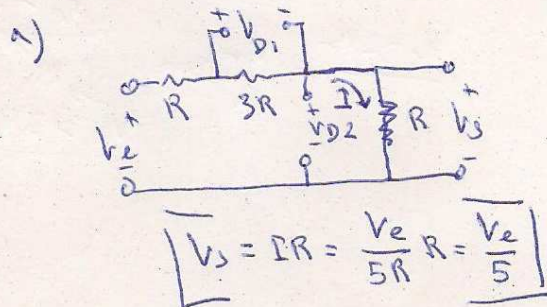 a)
+ V_D1 -
R 3R + V_D2 - I R + V_s -
+ V_e -
V_s = IR = V_e/5R R = V_e/5